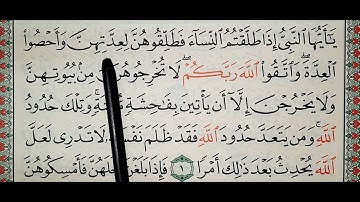 يَٰٓأَيُّهَا ٱلنَّبِىُّ إِذَا طَلَّقْتُمُ ٱلنِّسَآءَ فَطَلِّقُوهُنَّ لِعِدَّتِهِنَّ وَأَحْصُوا۟
ٱلْعِدَّةَ ۖ وَٱتَّقُوا۟ ٱللَّهَ رَبَّكُمْ ۖ لَا تُخْرِجُوهُنَّ مِنۢ بُيُوتِهِنَّ
وَلَا يَخْرُجْنَ إِلَّآ أَن يَأْتِينَ بِفَٰحِشَةٍ ۚ وَتِلْكَ حُدُودُ
ٱللَّهِ ۚ وَمَن يَتَعَدَّ حُدُودَ ٱللَّهِ فَقَدْ ظَلَمَ نَفْسَهُۥ ۚ لَا تَدْرِى لَعَلَّ
ٱللَّهَ يُحْدِثُ بَعْدَ ذَٰلِكَ أَمْرًا ١ فَإِذَا بَلَغْنَ أَجَلَهُنَّ فَأَمْسِكُوهُنَّ